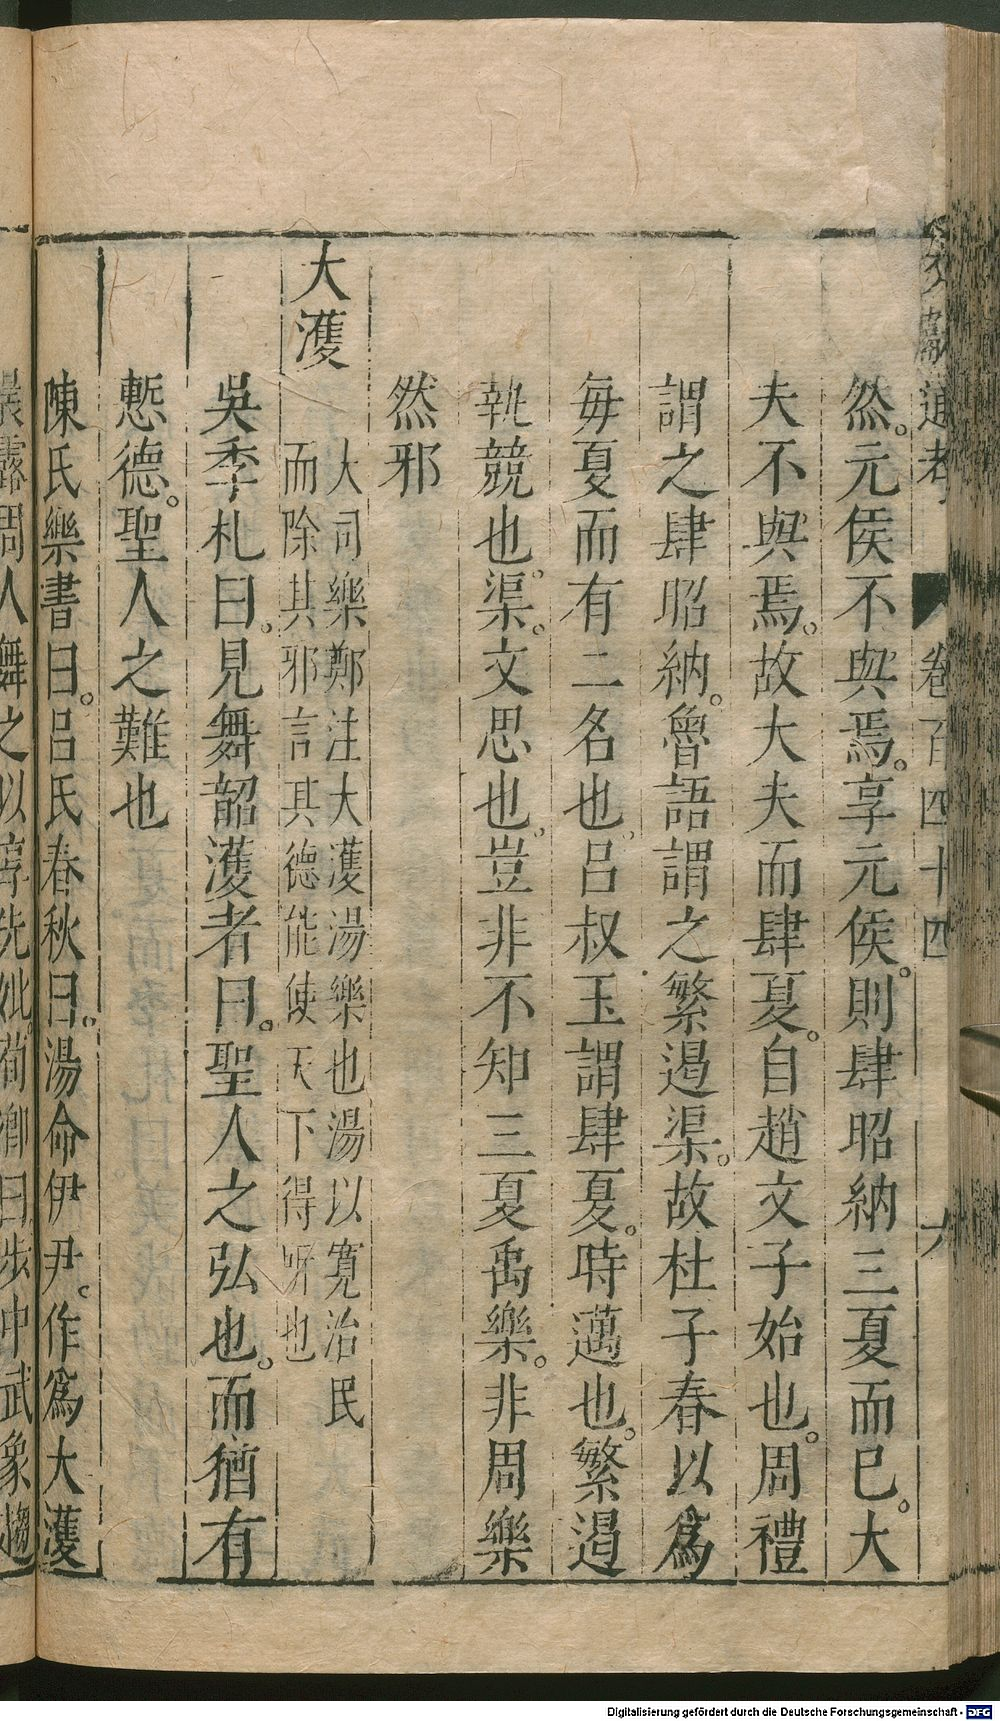 文獻通考 卷百四十四 六
然。元侯不與焉。享元侯。則肆昭納三夏而已。大
夫不與焉。故大夫而肆夏。自趙文子始也。周禮
謂之肆昭納。魯語謂之繁遏渠。故杜子春以爲
每夏而有二名也。呂叔玉謂肆夏。時邁也。繁遏
執競也。渠。文思也。豈非不知三夏禹樂。非周樂
然邪
大濩
大司樂鄭注大濩湯樂也湯以寬治民
而除其邪言其德能使天下得所也
吳季札曰。見舞韶濩者曰。聖人之弘也。而猶有
慙德。聖人之難也
陳氏樂書曰。呂氏春秋曰。湯命伊尹。作爲大濩
晨露周人舞之以享先妣。荀卿曰。步中武象趨
Digitalisierung gefördert durch die Deutsche Forschungsgemeinschaft - DFG